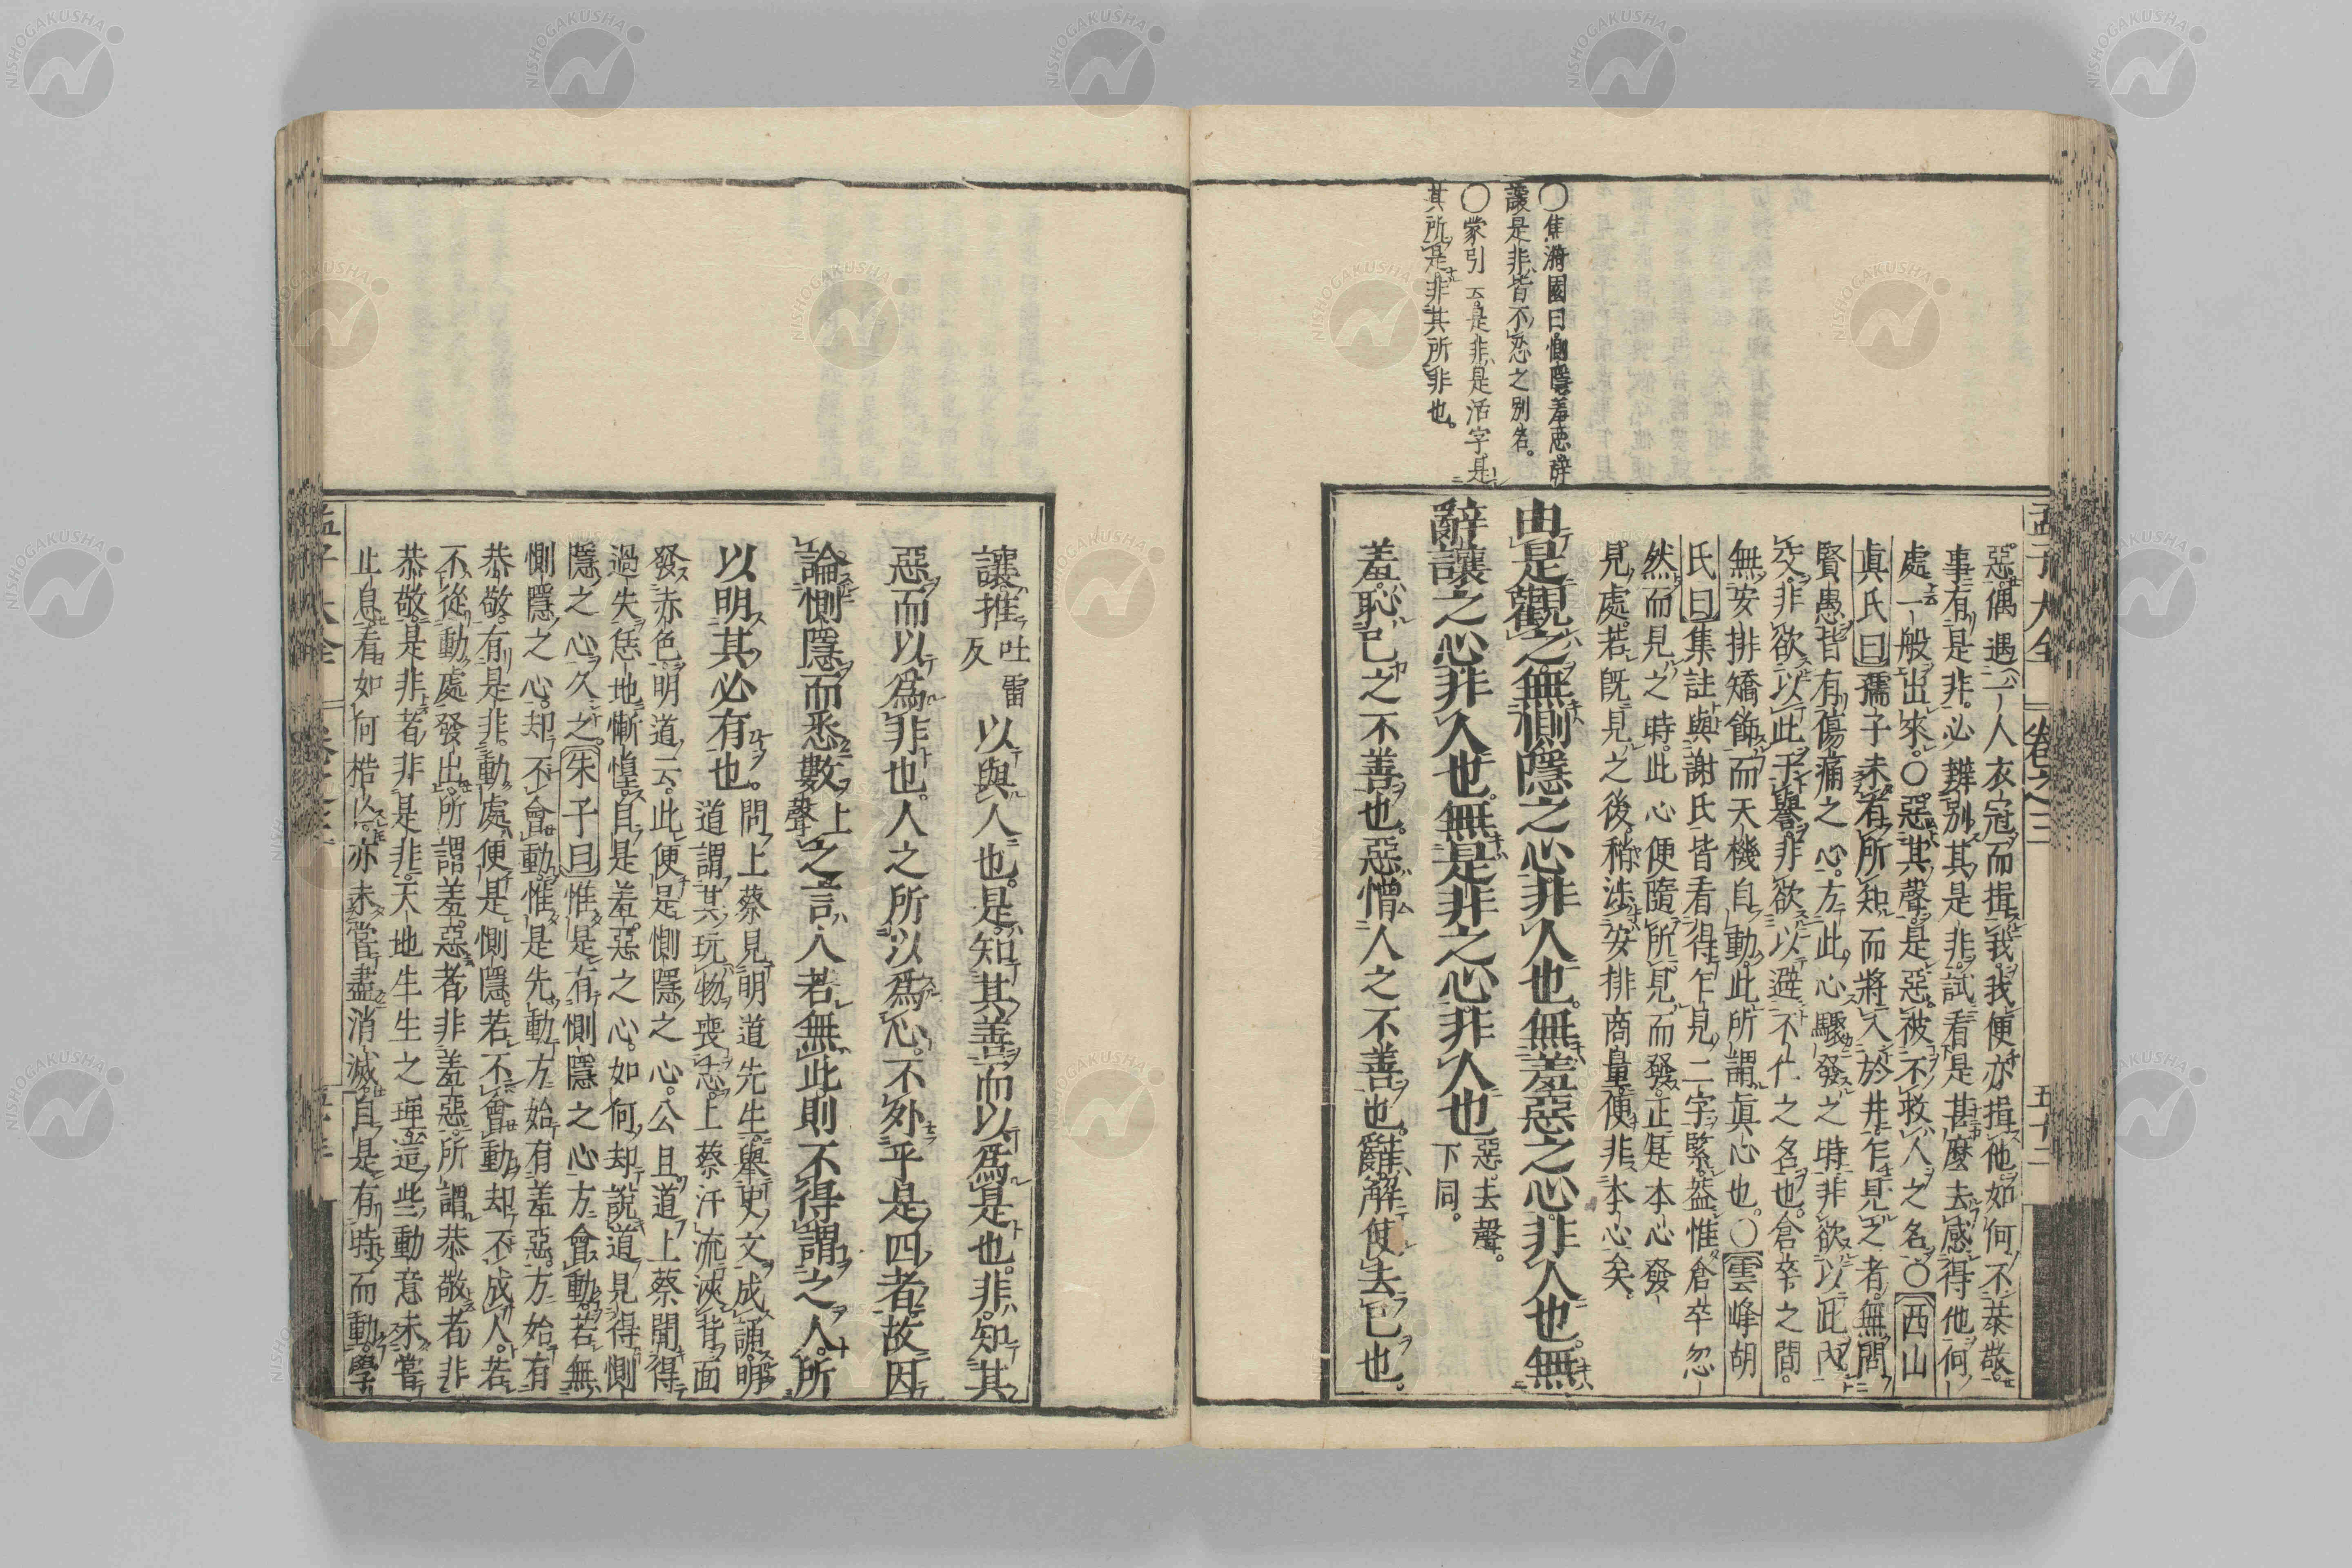 〇焦漪園曰惻隱羞惡辭
讓是非皆不忍之別名
〇蒙引云是非是活字是
其所是非其所非也
孟子大全 卷之三 五十二
惡偶遇一人衣冠而揖我我便亦揖他如何不恭敬
事有是非必辨別其是非試看是甚麼去感得他何
處一般出來〇惡其聲是惡被不救人之名〇西山
眞氏曰孺子未有所知而將入於井乍見之者無問
賢愚皆有傷痛之心方此心驟發之時非欲以此內
交非欲以此干譽非欲以避不仁之名也倉卒之間
無安排矯飾而天機自動此所謂眞心也〇雲峰胡
氏曰集註與謝氏皆看得乍見二字緊蓋惟倉卒忽
然而見之時此心便隨所見而發正是本心發
見處若既見之後稍涉安排商量便非本心矣
由是觀之無惻隱之心非人也無羞惡之心非人也無
辭讓之心非人也無是非之心非人也 惡去聲
下同
羞恥己之不善也惡憎人之不善也辭解使去己也
讓推吐雷反以與人也是知其善而以爲是也非知其
惡而以爲非也人之所以爲心不外乎是四者故因
論惻隱而悉數上聲之言人若無此則不得謂之人所
以明其必有也 問上蔡見明道先生舉史文成誦明
道謂其玩物喪志上蔡汗流浹背面
發赤色明道云此便是惻隱之心公且道上蔡聞得
過失恁地慚惶自是羞惡之心如何却說道見得惻
隱之心久之朱子曰惟是有惻隱之心方會動若無
惻隱之心却不會動惟是先動方始有羞惡方始有
恭敬有是非動處便是惻隱若不會動却不成人若
不從動處發出所謂羞惡者非羞惡所謂恭敬者非
恭敬是非者非是非天地生生之理這些動意未嘗
止息看如何梏亡亦未嘗盡消滅自是有時而動學
孟子大全